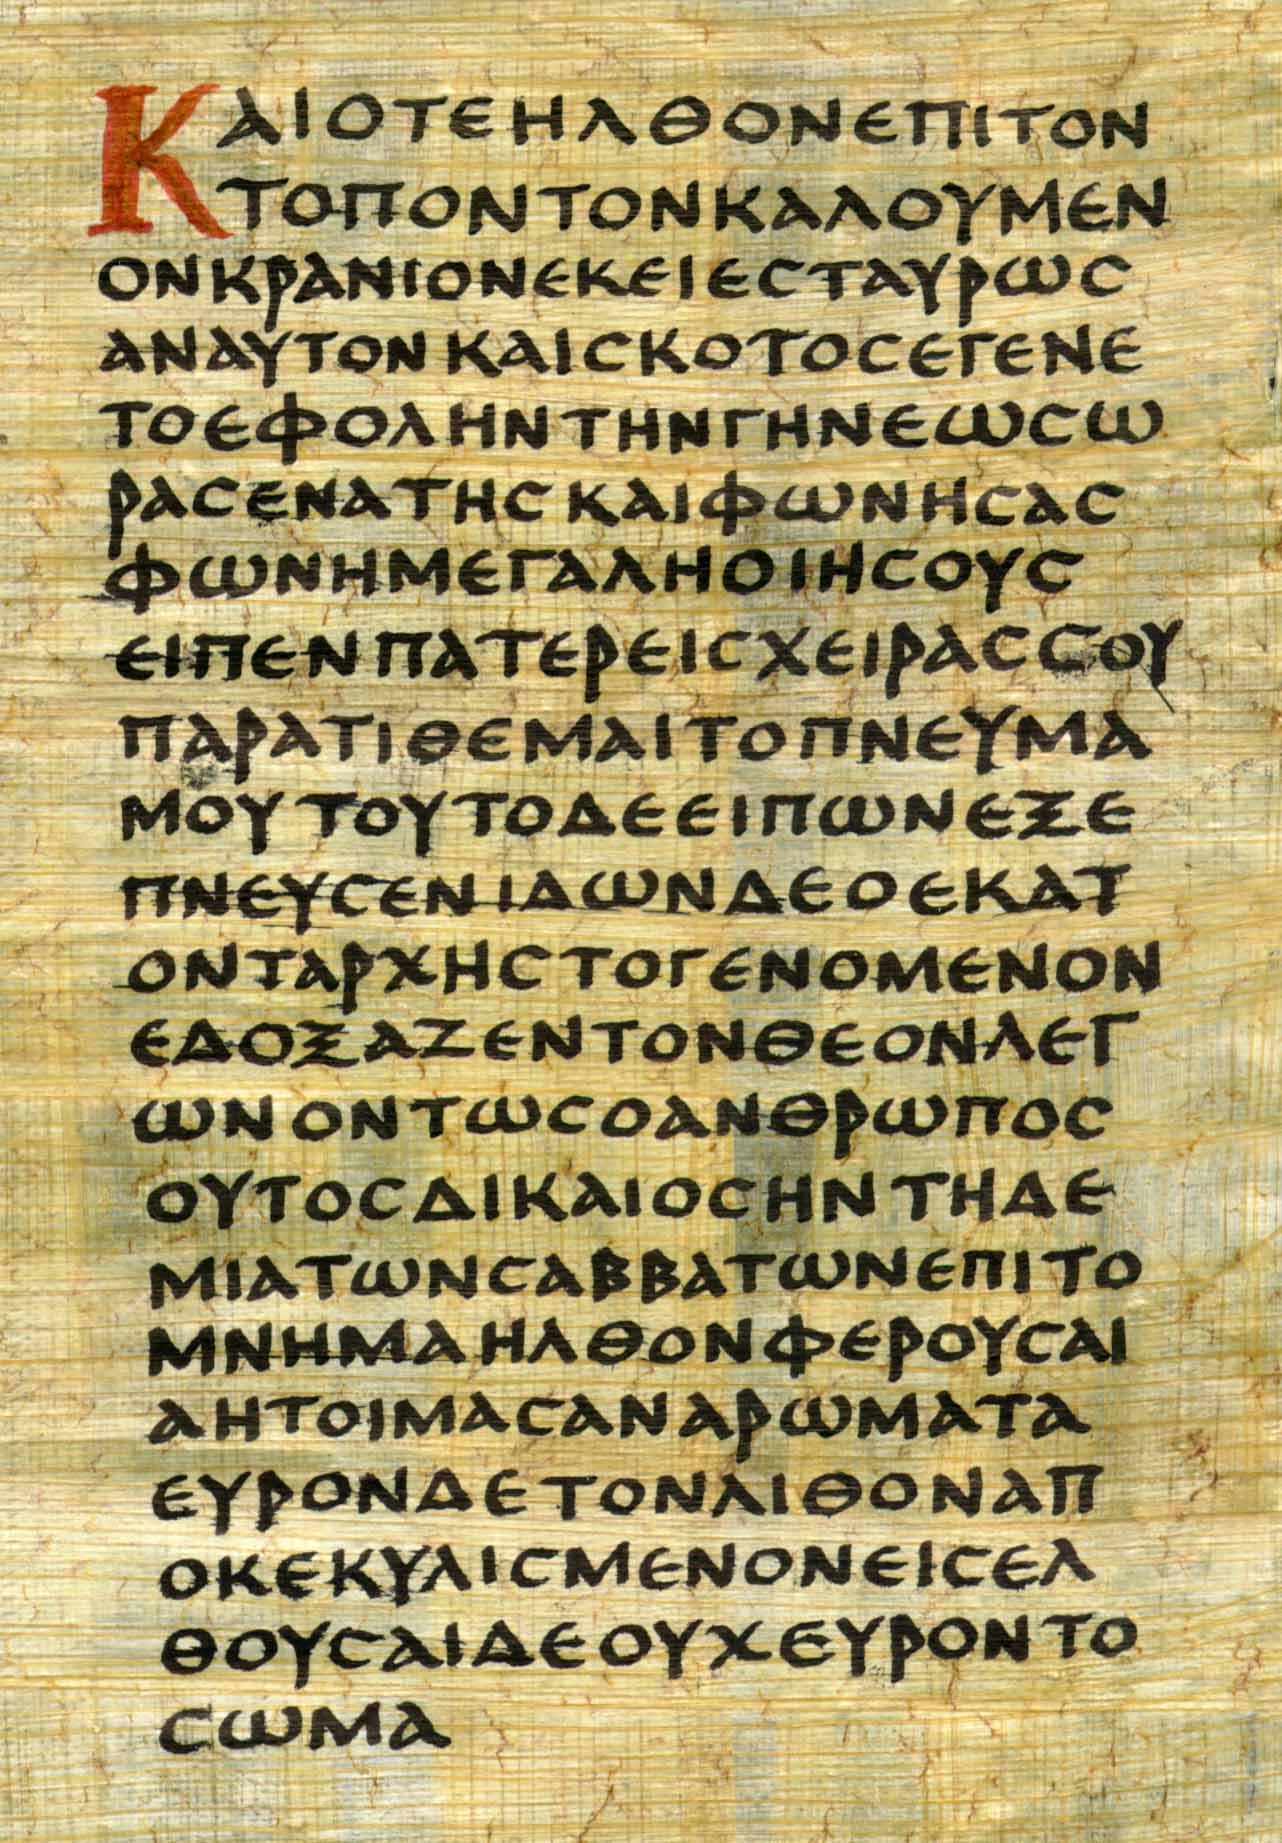 ΚΑΙΟΤΕΗΛΘΟΝΕΠΙΤΟΝ
ΤΟΠΟΝΤΟΝΚΑΛΟΥΜΕΝ
ΟΝΚΡΑΝΙΟΝΕΚΕΙΕϹΤΑΥΡΩϹ
ΑΝΑΥΤΟΝΚΑΙϹΚΟΤΟϹΕΓΕΝΕ
ΤΟΕΦΟΛΗΝΤΗΝΓΗΝΕΩϹΩ
ΡΑϹΕΝΑΤΗϹΚΑΙΦΩΝΗϹΑϹ
ΦΩΝΗΜΕΓΑΛΗΟΙΗϹΟΥϹ
ΕΙΠΕΝΠΑΤΕΡΕΙϹΧΕΙΡΑϹϹΟΥ
ΠΑΡΑΤΙΘΕΜΑΙΤΟΠΝΕΥΜΑ
ΜΟΥΤΟΥΤΟΔΕΕΙΠΩΝΕΞΕ
ΠΝΕΥϹΕΝΙΔΩΝΔΕΟΕΚΑΤ
ΟΝΤΑΡΧΗϹΤΟΓΕΝΟΜΕΝΟΝ
ΕΔΟΞΑΖΕΝΤΟΝΘΕΟΝΛΕΓ
ΩΝΟΝΤΩϹΟΑΝΘΡΩΠΟϹ
ΟΥΤΟϹΔΙΚΑΙΟϹΗΝΤΗΔΕ
ΜΙΑΤΩΝϹΑΒΒΑΤΩΝΕΠΙΤΟ
ΜΝΗΜΑΗΛΘΟΝΦΕΡΟΥϹΑΙ
ΑΗΤΟΙΜΑϹΑΝΑΡΩΜΑΤΑ
ΕΥΡΟΝΔΕΤΟΝΛΙΘΟΝΑΠ
ΟΚΕΚΥΛΙϹΜΕΝΟΝΕΙϹΕΛ
ΘΟΥϹΑΙΔΕΟΥΧΕΥΡΟΝΤΟ
ϹΩΜΑ